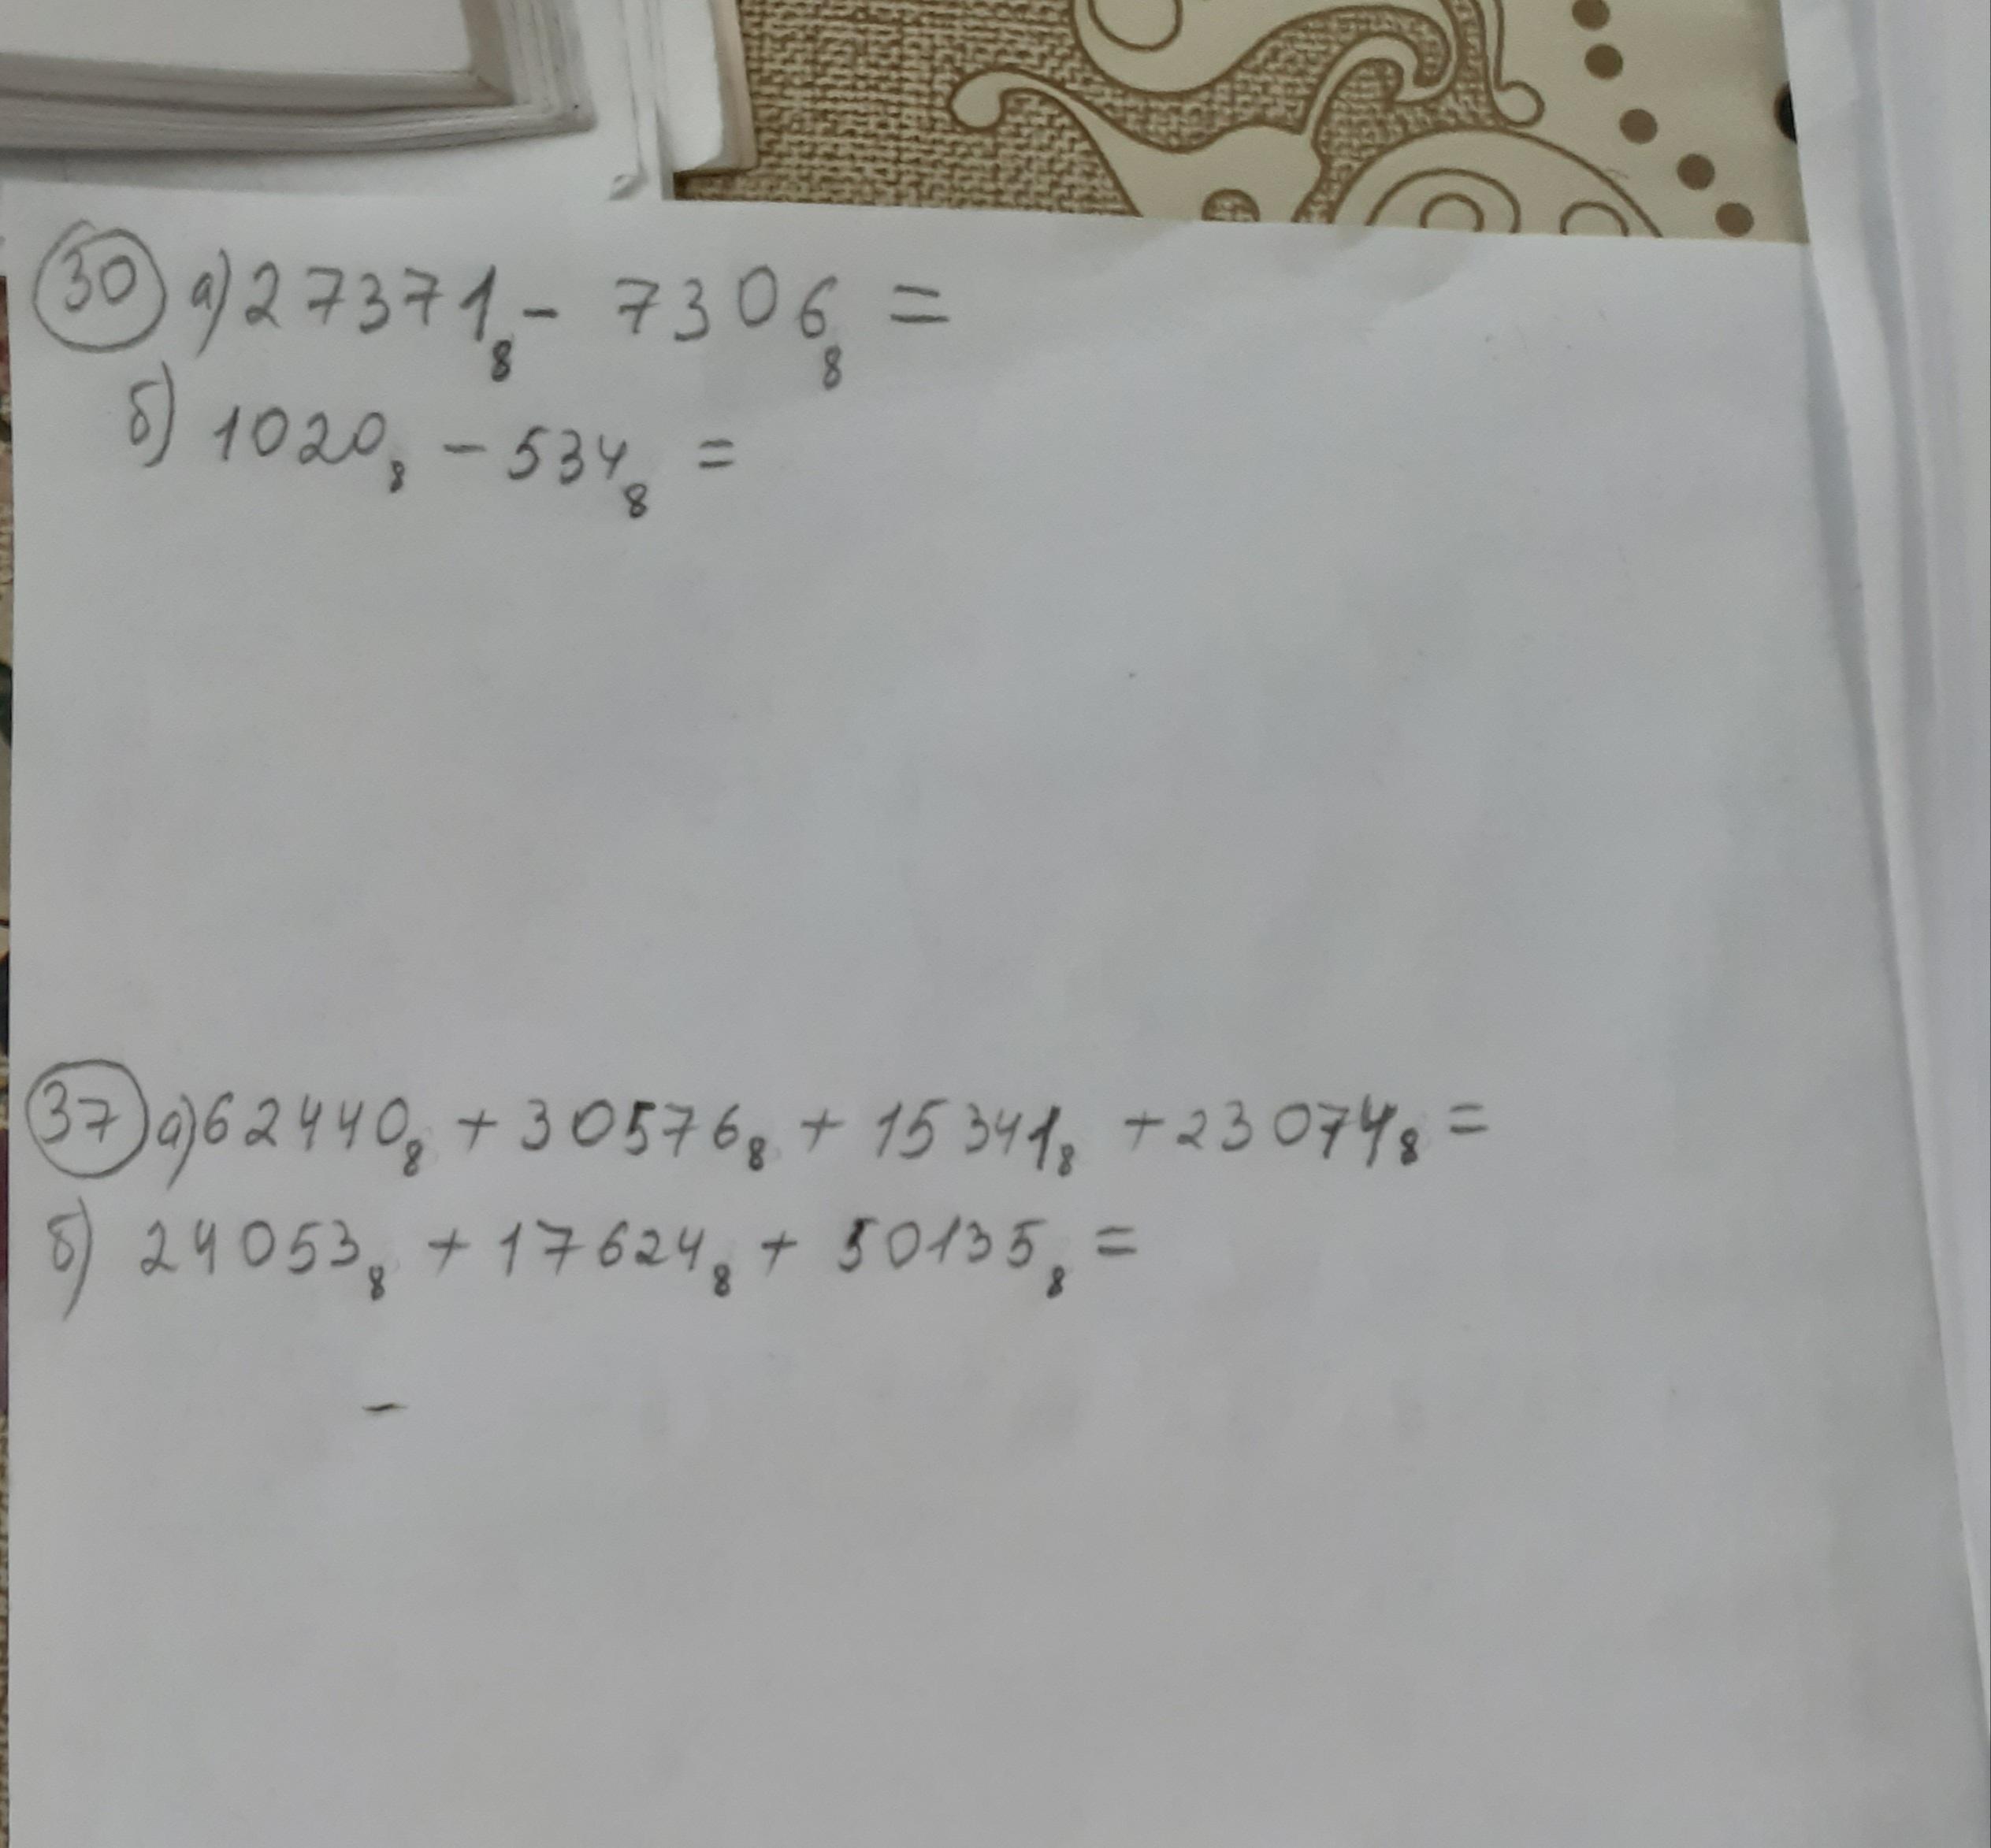 30 а) 27371₈ - 7306₈ =
б) 1020₈ - 534₈ =
37 а) 62440₈ + 30576₈ + 15341₈ + 23074₈ =
б) 24053₈ + 17624₈ + 50135₈ =
-